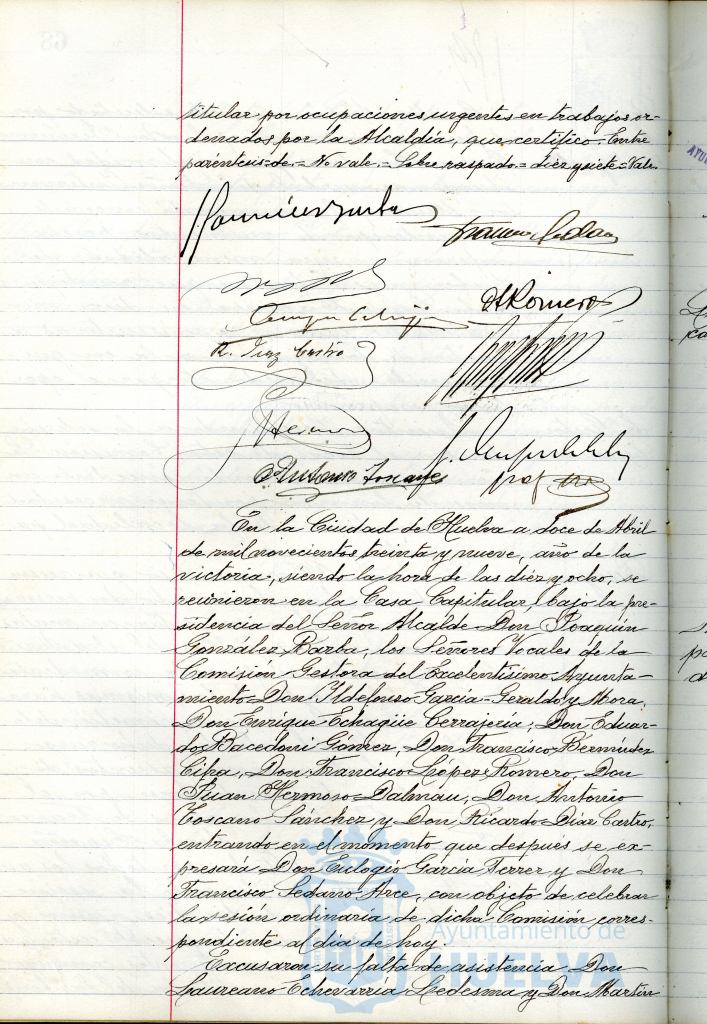 titular por ocupaciones urgentes en trabajos or-
denados por la Alcaldía, que certifico.- Entre
paréntesis=de=No vale.=Sobre raspado=diez y siete=Vale.
A. Romero
R. Diaz Castro
Antonio Toscano
En la Ciudad de Huelva a doce de Abril
de mil novecientos treinta y nueve, año de la
victoria, siendo la hora de las diez y ocho, se
reunieron en la Casa Capitular, bajo la pre-
sidencia del Señor Alcalde Don Joaquín
González Barba, los Señores Vocales de la
Comisión Gestora del Excelentísimo Ayunta-
miento Don Ildefonso García-Geraldo y Mora,
Don Enrique Echagüe Cerrajería, Don Eduar-
do Bacedoni Gómez, Don Francisco Bermudez
Cipa, Don Francisco López Romero, Don
Juan Hermoso Dalmau, Don Antonio
Toscano Sánchez y Don Ricardo Díaz Castro,
entrando en el momento que después se ex-
presará Don Eulogio García Ferrer y Don
Francisco Sedano Arce, con objeto de celebrar
la sesión ordinaria de dicha Comisión corres-
pondiente al día de hoy.
Excusaron su falta de asistencia Don
Laureano Echevarría Ledesma y Don Martín
Ayuntamiento de
HUELVA